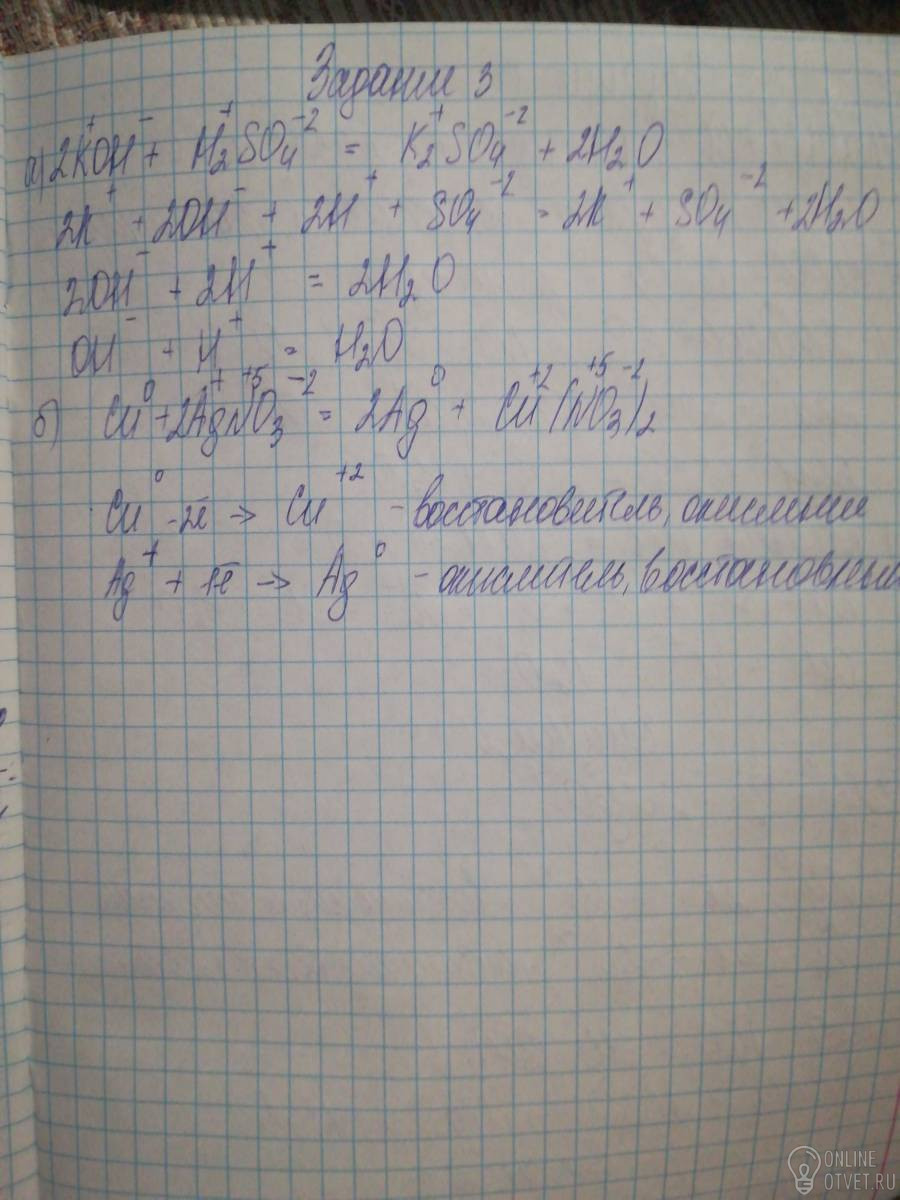 Задание 3
а) 2K⁺OH⁻ + H₂⁺SO₄⁻² = K₂⁺SO₄⁻² + 2H₂O
2K⁺ + 2OH⁻ + 2H⁺ + SO₄⁻² = 2K⁺ + SO₄⁻² + 2H₂O
2OH⁻ + 2H⁺ = 2H₂O
OH⁻ + H⁺ = H₂O
б) Cu⁰ + 2Ag⁺N⁺⁵O₃⁻² = 2Ag⁰ + Cu⁺²(N⁺⁵O₃⁻²)₂
Cu⁰ - 2ē → Cu⁺² - восстановитель, окисление
Ag⁺ + 1ē → Ag⁰ - окислитель, восстановлени
ONLINE
OTVET.RU